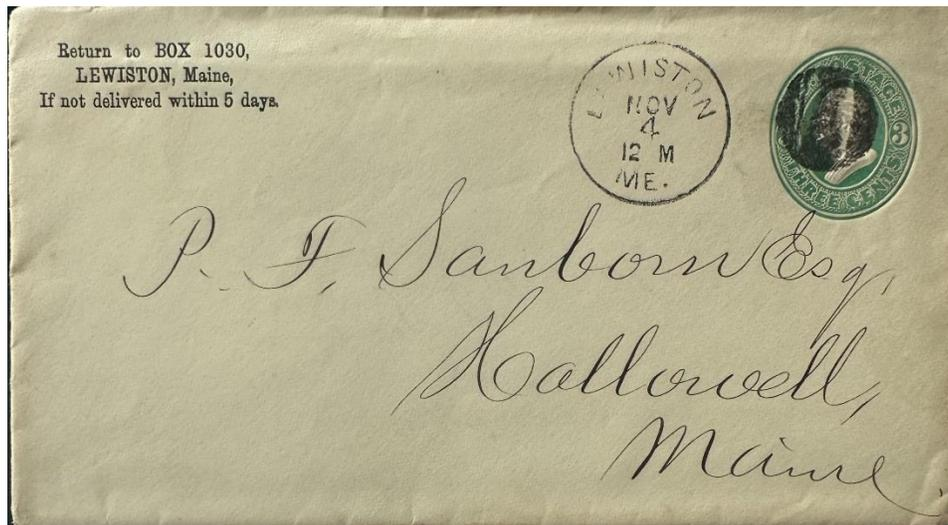 Return to BOX 1030,
LEWISTON, Maine,
If not delivered within 5 days.
LEWISTON
NOV
4
12 M
ME.
POSTAGE
3
THREE CENTS
P. F. Sanborn Esq,
Hallowell,
Maine.